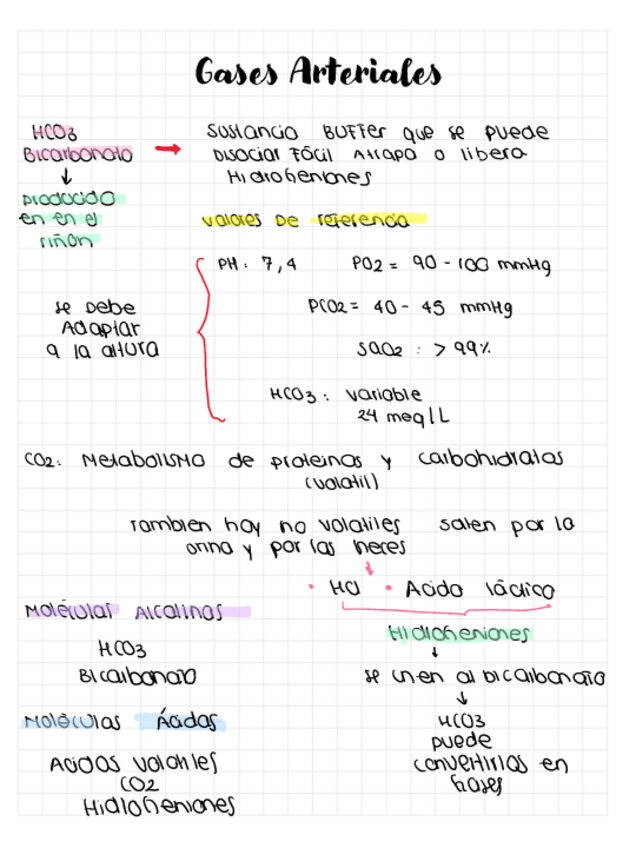 Gases Arteriales
HCO3
Bicarbonato → Sustancia BUFFer que se puede
disociar Fácil Atrapa o libera
Hidrogeniones
↓
producido
en en el
riñón
valores de referencia
PH: 7,4 PO2 = 90 - 100 mmHg
PCO2 = 40 - 45 mmHg
se debe
Adaptar
a la altura
SaO2 : > 99%
HCO3 : variable
24 meq/L
CO2: Metabolismo de proteinas y carbohidratas
(volatil)
Tambien hay no volatiles salen por la
orina y por las heces
• HCl • Acido láctico
Moléculas Alcalinas
HCO3
Bicarbonato
Hidrogeniones
↓
se unen al bicarbonato
↓
HCO3
puede
convertirlas en
bases
Moléculas Ácidas
Acidos volatiles
CO2
Hidrogeniones